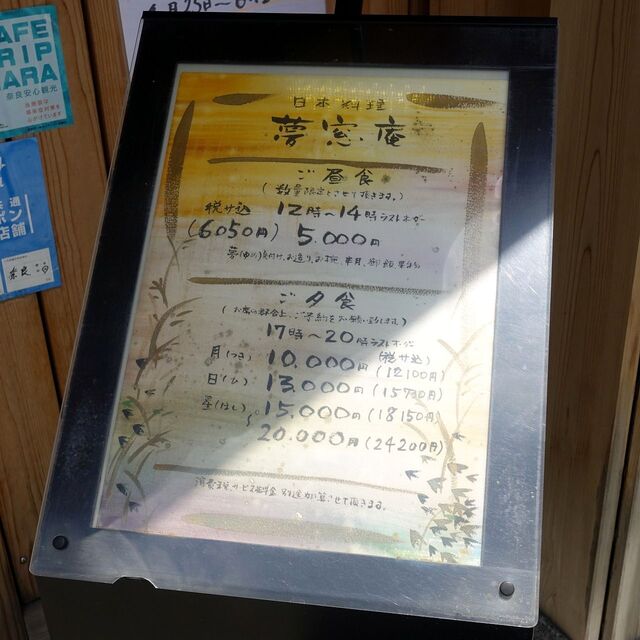 月25日～
AFE
TRIP
NARA
奈良安心観光
店舗
奈良
日本料理
夢窓庵
ご昼食
(数量限定とさせて頂きます。)
税サ込 12時～14時ラストオーダー
(6050円) 5.000円
ご夕食
(お席の都合上、ご予約をお願い致します)
17時～20時ラストオーダー
月(つき) 10.000円 (税サ込) (12100円)
日(ひ) 13.000円 (15730円)
星(ほし) 15.000円 (18150円)
～
20.000円 (24200円)
消費税サービス料金 別途加算させて頂きます。